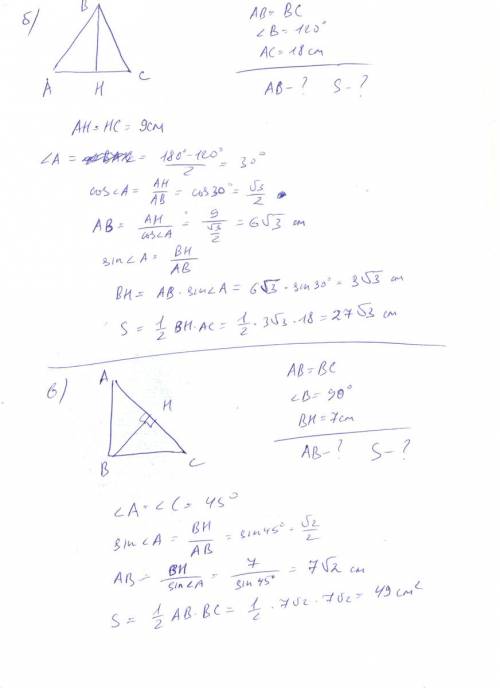 б)
B
A H C
AB = BC
∠B = 120°
AC = 18 cm
AB - ? S - ?
AH = HC = 9 cm
∠A = = (180° - 120°)/2 = 30°
cos∠A = AH/AB = cos 30° = √3/2
AB = AH/cos∠A = 9/(√3/2) = 6√3 cm
sin∠A = BH/AB
BH = AB · sin∠A = 6√3 · sin 30° = 3√3 cm
S = 1/2 BH · AC = 1/2 · 3√3 · 18 = 27√3 cm
в)
A
H
B C
AB = BC
∠B = 90°
BH = 7 cm
AB - ? S - ?
∠A = ∠C = 45°
sin∠A = BH/AB = sin 45° = √2/2
AB = BH/sin∠A = 7/sin 45° = 7√2 cm
S = 1/2 AB · BC = 1/2 · 7√2 · 7√2 = 49 cm²